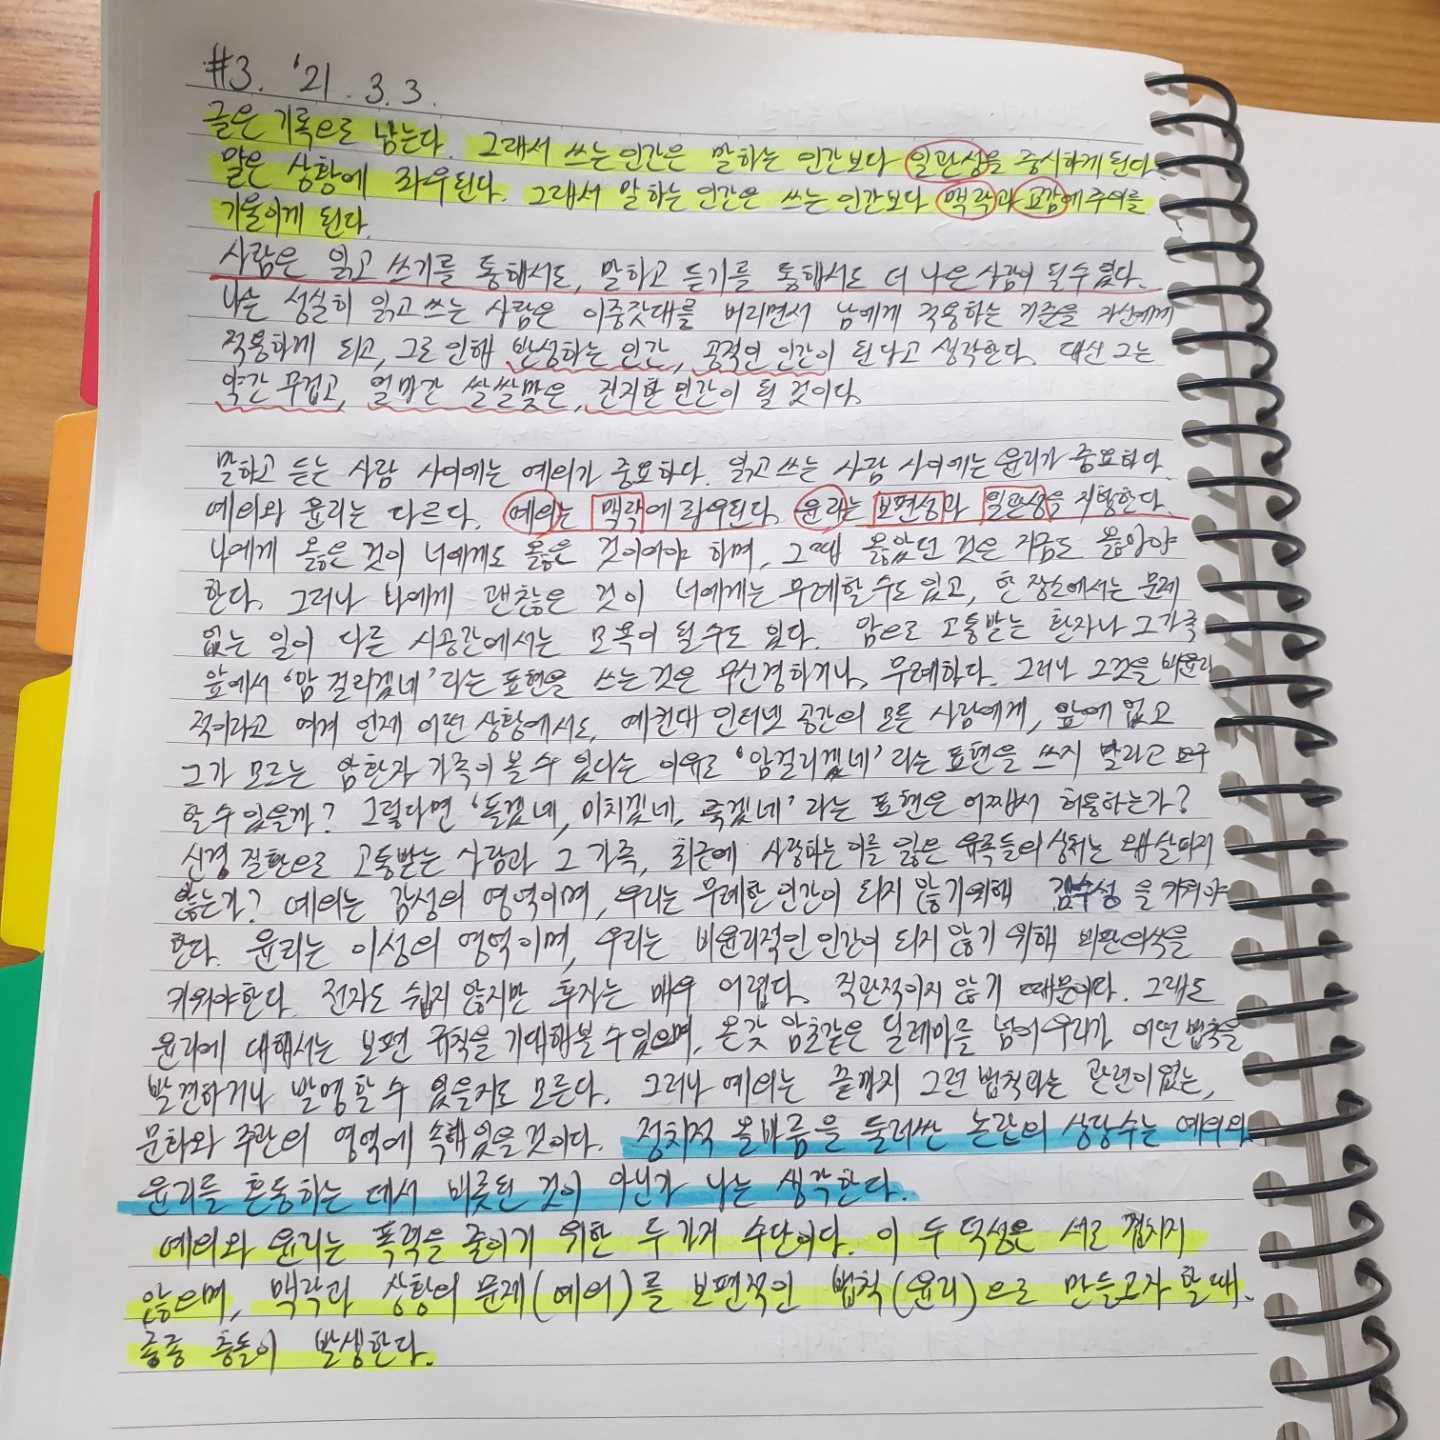 #3. '21. 3. 3.
글은 기록으로 남는다. 그래서 쓰는 인간은 말하는 인간보다 일관성을 중시하게 된다.
말은 상황에 좌우된다. 그래서 말하는 인간은 쓰는 인간보다 맥락과 교감에 주의를
기울이게 된다.
사람은 읽고 쓰기를 통해서도, 말하고 듣기를 통해서도 더 나은 사람이 될 수 있다.
나는 성실히 읽고 쓰는 사람은 이중잣대를 버리면서 남에게 적용하는 기준을 자신에게
적용하게 되고, 그로 인해 반성하는 인간, 공적인 인간이 된다고 생각한다. 대신 그는
약간 무겁고, 얼마간 쌀쌀맞은, 진지한 인간이 될 것이다.
말하고 듣는 사람 사이에는 예의가 중요하다. 읽고 쓰는 사람 사이에는 윤리가 중요하다.
예의와 윤리는 다르다. 예의는 맥락에 좌우된다. 윤리는 보편성과 일관성을 지향한다.
나에게 옳은 것이 너에게도 옳은 것이어야 하며, 그때 옳았던 것은 지금도 옳아야
한다. 그러나 나에게 괜찮은 것이 너에게는 무례할 수도 있고, 한 장소에서는 문제
없는 일이 다른 시공간에서는 모욕이 될 수도 있다. 암으로 고통받는 환자나 그 가족
앞에서 '암 걸리겠네'라는 표현을 쓰는 것은 무신경하거나, 무례하다. 그러나 그것을 비윤리
적이라고 여겨 언제 어떤 상황에서도, 예컨대 인터넷 공간의 모든 사람에게, 앞에 없고
그가 모르는 암환자 가족이 볼 수 있다는 이유로 '암걸리겠네'라는 표현을 쓰지 말라고 요구
할 수 있을까? 그렇다면 '돌겠네, 미치겠네, 죽겠네'라는 표현은 어째서 허용하는가?
신경 질환으로 고통받는 사람과 그 가족, 최근에 사랑하는 이를 잃은 유족들의 상처는 왜 살피지
않는가? 예의는 감성의 영역이며, 우리는 무례한 인간이 되지 않기 위해 감수성을 키워야
한다. 윤리는 이성의 영역이며, 우리는 비윤리적인 인간이 되지 않기 위해 비판의식을
키워야한다. 전자도 쉽지 않지만 후자는 매우 어렵다. 직관적이지 않기 때문이다. 그래도
윤리에 대해서는 보편 규칙을 기대해볼 수 있으며, 온갖 암초같은 딜레마를 넘어 우리가 어떤 법칙을
발견하거나 발명할 수 있을지도 모른다. 그러나 예의는 끝까지 그런 법칙과는 관련이 없는,
문화와 주관의 영역에 속해 있을 것이다. 정치적 올바름을 둘러싼 논란의 상당수는 예의와
윤리를 혼동하는 데서 비롯된 것이 아닌가 나는 생각한다.
예의와 윤리는 폭력을 줄이기 위한 두 가지 수단이다. 이 두 덕성은 서로 겹치지
않으며, 맥락과 상황의 문제(예의)를 보편적인 법칙(윤리)으로 만들고자 할 때,
종종 충돌이 발생한다.